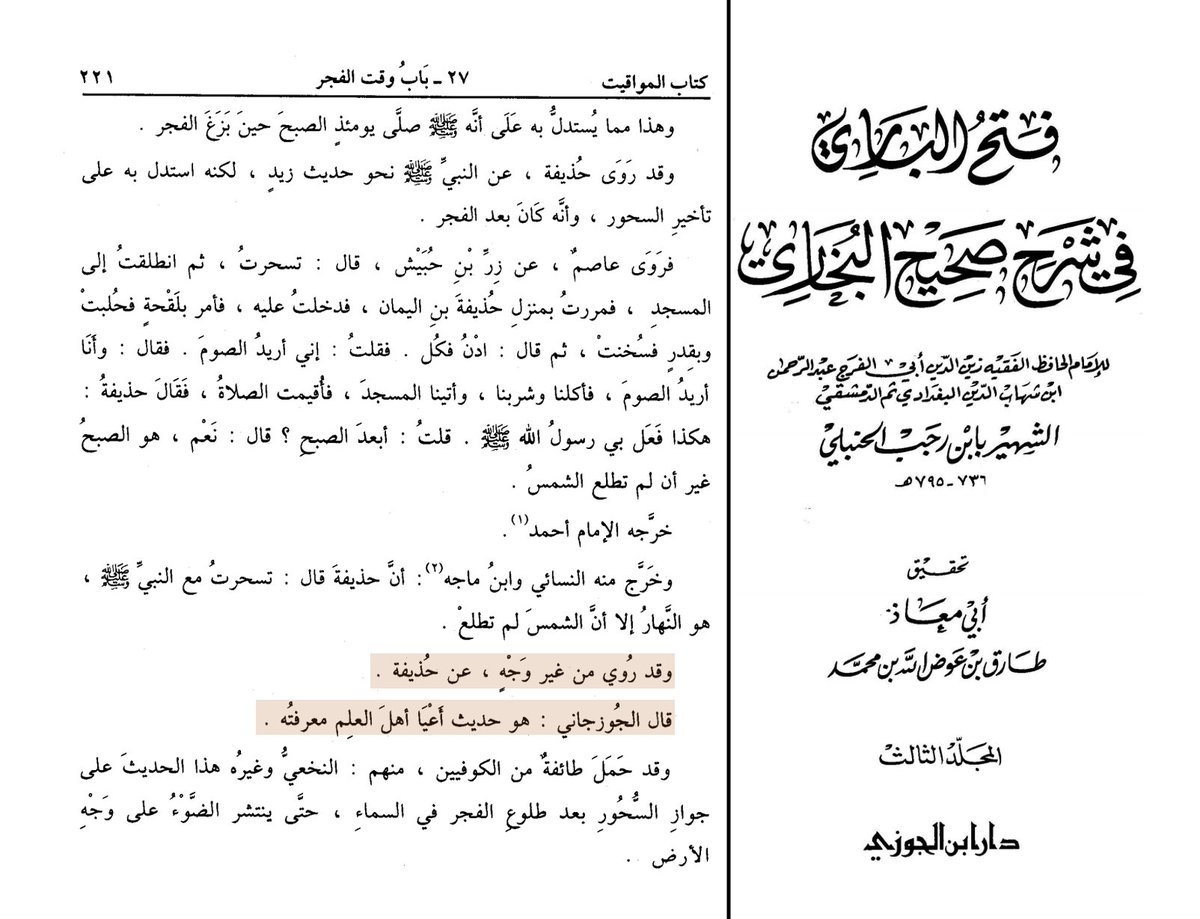 كتاب المواقيت ٢٧ ـ بَابُ وقت الفجر ٢٢١
وهذا مما يُستدلُّ به عَلَى أنَّه ﷺ صلَّى يومئذٍ الصبحَ حينَ بَزَغَ الفجر .
وقد رَوَى حُذيفة ، عن النبيِّ ﷺ نحو حديث زيدٍ ، لكنه استدل به على
تأخيرِ السحور ، وأنَّه كَانَ بعد الفجر .
فرَوَى عاصمٌ ، عن زِرِّ بْنِ حُبَيْش ، قال : تسحرتُ ، ثم انطلقتُ إلى
المسجدِ ، فمررتُ بمنزلِ حُذيفةَ بنِ اليمان ، فدخلتُ عليه ، فأمر بلَقْحةٍ فحُلبتْ
وبقِدرٍ فسُخنتْ ، ثم قال : ادْنُ فكُل . فقلتُ : إني أريدُ الصومَ . فقال : وأنَا
أريدُ الصومَ ، فأكلنا وشربنا ، وأتينا المسجدَ ، فأُقيمت الصلاةُ ، فَقَالَ حذيفةُ :
هكذا فَعَل بي رسولُ الله ﷺ . قلتُ : أبعدَ الصبحِ ؟ قال : نَعْم ، هو الصبحُ
غير أن لم تطلع الشمسُ .
خرَّجه الإمام أحمد(١).
وخَرَّج منه النسائي وابنُ ماجه(٢): أنَّ حذيفةَ قال : تسحرتُ مع النبيِّ ﷺ ،
هو النَّهارُ إلا أنَّ الشمسَ لم تطلعْ .
وقد رُوي من غير وَجْهٍ ، عن حُذيفة .
قال الجُوزجاني : هو حديث أَعْيَا أهلَ العلِم معرفتُه .
وقد حَمَلَ طائفةٌ من الكوفيين ، منهم : النخعيُّ وغيرُه هذا الحديثَ على
جوازِ السُّحُورِ بعد طلوعِ الفجر في السماءِ ، حتَّى ينتشر الضَّوْءُ على وَجْهِ
الأرض .
فَتحُ البَارِي
فِي شَرْحِ صَحِيْحِ البُخَارِي
للإمام الحافظ الفقيه زين الدين أبي الفرج عبد الرحمن
ابن شهاب الدين البغدادي ثم الدمشقي
الشهير بابن رجب الحنبلي
٧٣٦ - ٧٩٥ هـ
تحقيق
أبي معاذ
طارق بن عوض الله بن محمد
المجلد الثالث
دار ابن الجوزي